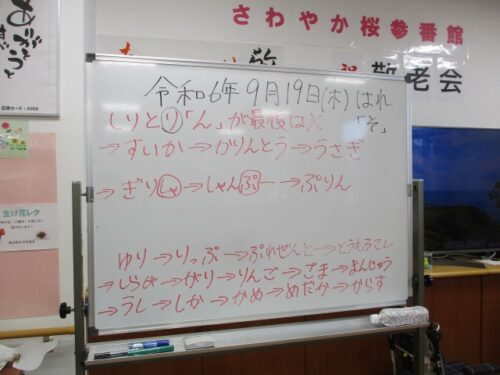 ありがとうを
さわやか桜参番館
祝 敬老会
令和6年9月19日(木) はれ
しりとり「ん」が最後は× 「そ」
→すいか→かりんとう→うさぎ
→ぎりしゃ→しゃんぷー→ぷりん
ゆり→りっぷ→ぷれぜんと→とうもろこし
→しらが→がり→りんご→ごま→まんじゅう
→うし→しか→かめ→めだか→からす
生け花レク